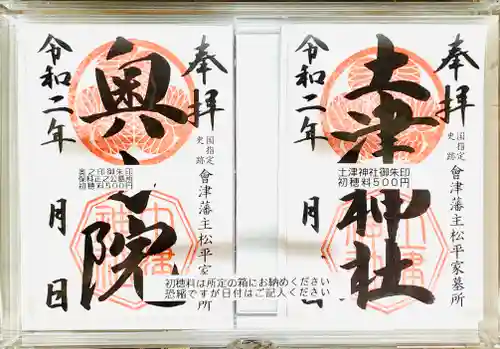 奉拝
土津神社
令和二年
月
日
国指定
史跡
會津藩主松平家墓所
土津神社御朱印
初穂料500円
奉拝
奥之院
令和二年
月
日
国指定
史跡
會津藩主松平家
所
奥之印御朱印
保科正之公墓所
初穂料500円
初穂料は所定の箱にお納めください
恐縮ですが日付はご記入ください